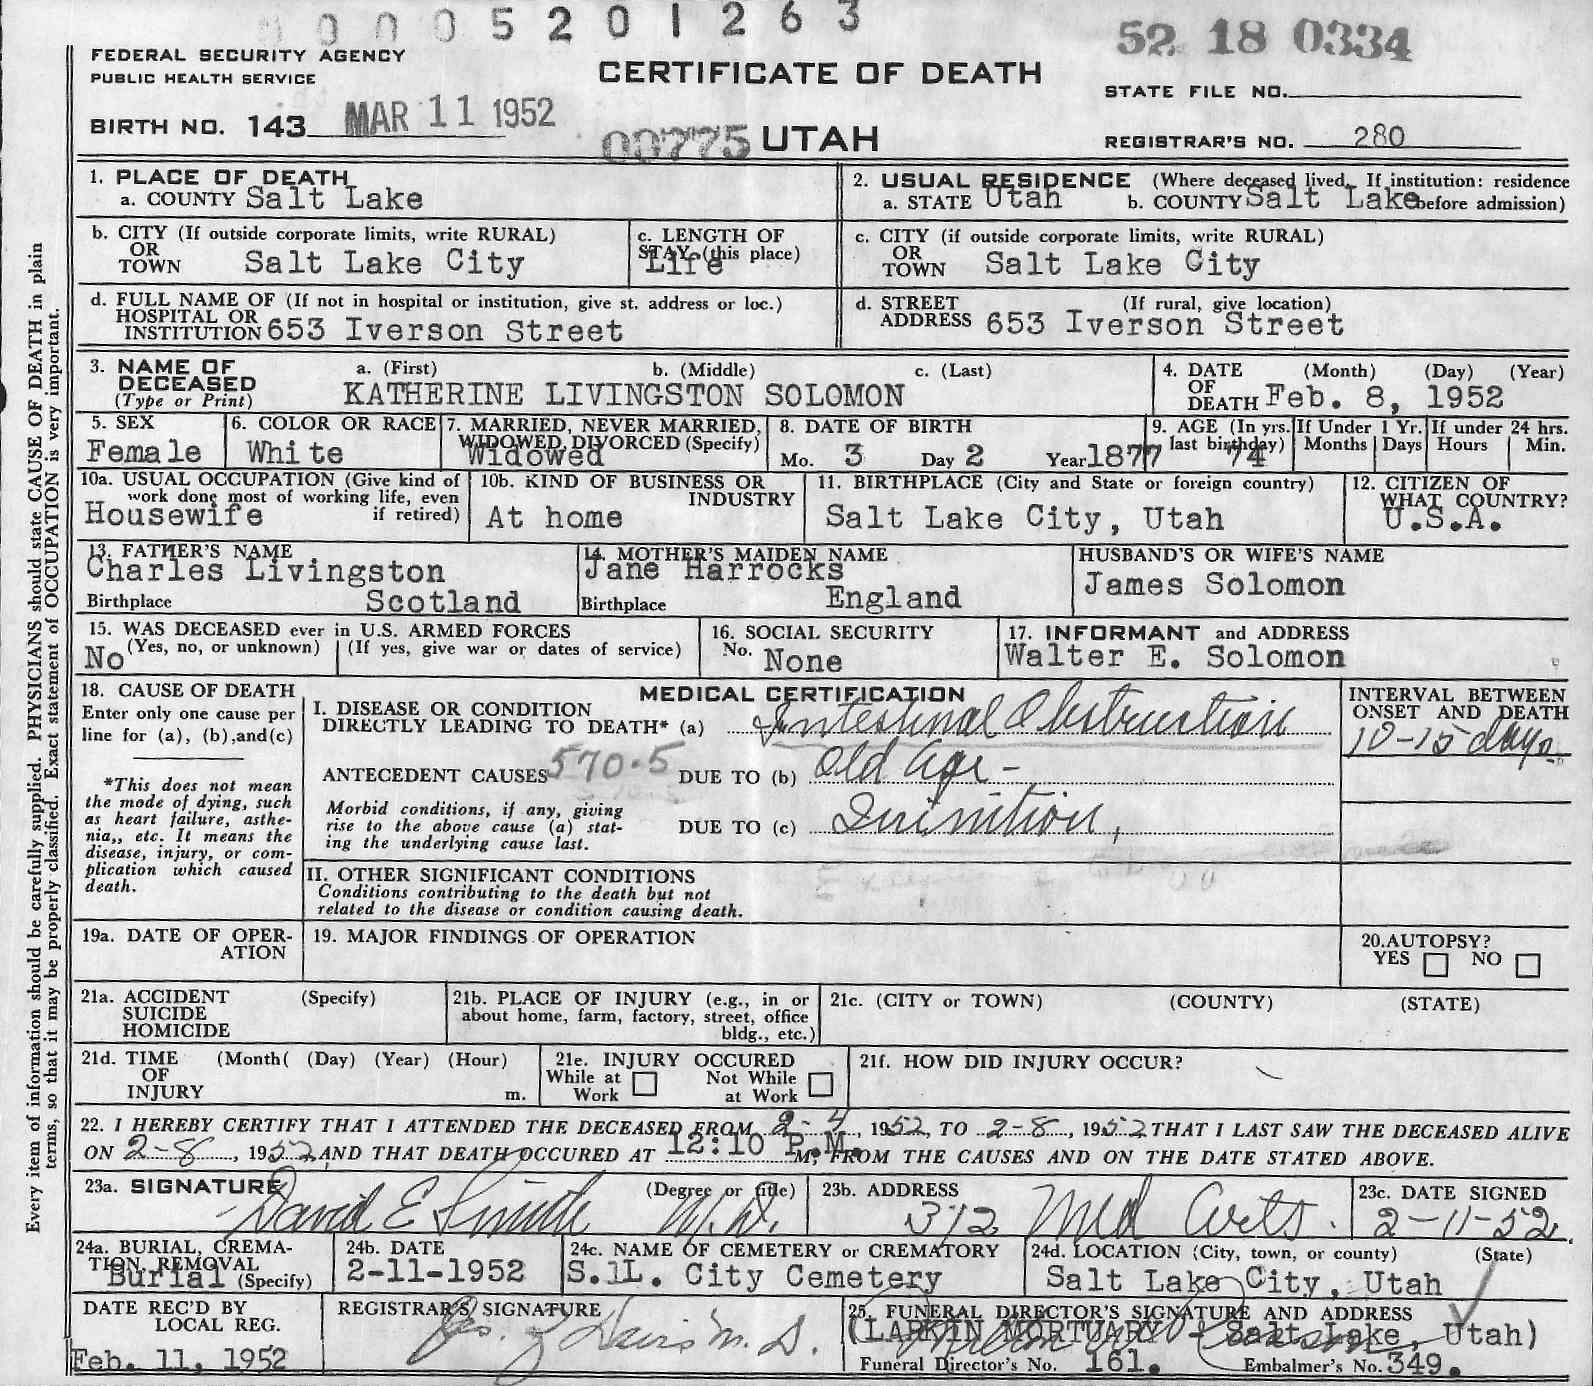 0005201263
52 18 0334
FEDERAL SECURITY AGENCY
PUBLIC HEALTH SERVICE
CERTIFICATE OF DEATH
STATE FILE NO.
BIRTH NO. 143 MAR 11 1952
00775 UTAH
REGISTRAR'S NO. 280
1. PLACE OF DEATH
a. COUNTY Salt Lake
2. USUAL RESIDENCE (Where deceased lived. If institution: residence before admission)
a. STATE Utah b. COUNTY Salt Lake
b. CITY (If outside corporate limits, write RURAL)
OR
TOWN Salt Lake City
c. LENGTH OF
STAY (this place)
Life
c. CITY (if outside corporate limits, write RURAL)
OR
TOWN Salt Lake City
d. FULL NAME OF (If not in hospital or institution, give st. address or loc.)
HOSPITAL OR
INSTITUTION 653 Iverson Street
d. STREET (If rural, give location)
ADDRESS 653 Iverson Street
3. NAME OF DECEASED
(Type or Print)
a. (First) b. (Middle) c. (Last)
KATHERINE LIVINGSTON SOLOMON
4. DATE (Month) (Day) (Year)
OF
DEATH Feb. 8, 1952
5. SEX
Female
6. COLOR OR RACE
White
7. MARRIED, NEVER MARRIED,
WIDOWED, DIVORCED (Specify)
Widowed
8. DATE OF BIRTH
Mo. 3 Day 2 Year 1877
9. AGE (In yrs. last birthday)
74
If Under 1 Yr.
Months Days
If under 24 hrs.
Hours Min.
10a. USUAL OCCUPATION (Give kind of
work done most of working life, even
if retired)
Housewife
10b. KIND OF BUSINESS OR
INDUSTRY
At home
11. BIRTHPLACE (City and State or foreign country)
Salt Lake City, Utah
12. CITIZEN OF
WHAT COUNTRY?
U.S.A.
13. FATHER'S NAME
Charles Livingston
Birthplace Scotland
14. MOTHER'S MAIDEN NAME
Jane Harrocks
Birthplace England
HUSBAND'S OR WIFE'S NAME
James Solomon
15. WAS DECEASED ever in U.S. ARMED FORCES
(Yes, no, or unknown) (If yes, give war or dates of service)
No
16. SOCIAL SECURITY
No. None
17. INFORMANT and ADDRESS
Walter E. Solomon
18. CAUSE OF DEATH
Enter only one cause per
line for (a), (b),and(c)
*This does not mean
the mode of dying, such
as heart failure, asthe-
nia,, etc. It means the
disease, injury, or com-
plication which caused
death.
MEDICAL CERTIFICATION
I. DISEASE OR CONDITION
DIRECTLY LEADING TO DEATH* (a) Intestinal Obstruction
ANTECEDENT CAUSES 570.5 DUE TO (b) Old Age -
Morbid conditions, if any, giving
rise to the above cause (a) stat-
ing the underlying cause last.
DUE TO (c)
INTERVAL BETWEEN
ONSET AND DEATH
10-15 days
II. OTHER SIGNIFICANT CONDITIONS
Conditions contributing to the death but not
related to the disease or condition causing death.
19a. DATE OF OPER-
ATION
19. MAJOR FINDINGS OF OPERATION
20.AUTOPSY?
YES NO
21a. ACCIDENT (Specify)
SUICIDE
HOMICIDE
21b. PLACE OF INJURY (e.g., in or
about home, farm, factory, street, office
bldg., etc.)
21c. (CITY or TOWN) (COUNTY) (STATE)
21d. TIME (Month( (Day) (Year) (Hour)
OF
INJURY m.
21e. INJURY OCCURED
While at Work Not While at Work
21f. HOW DID INJURY OCCUR?
22. I HEREBY CERTIFY THAT I ATTENDED THE DECEASED FROM 2-4, 1952, TO 2-8, 1952 THAT I LAST SAW THE DECEASED ALIVE
ON 2-8, 1952 AND THAT DEATH OCCURED AT 12:10 P.M. M, FROM THE CAUSES AND ON THE DATE STATED ABOVE.
23a. SIGNATURE (Degree or title)
David E Smith M.D.
23b. ADDRESS
312 Med Arts.
23c. DATE SIGNED
2-11-52
24a. BURIAL, CREMA-
TION, REMOVAL
Burial (Specify)
24b. DATE
2-11-1952
24c. NAME OF CEMETERY or CREMATORY
S. L. City Cemetery
24d. LOCATION (City, town, or county) (State)
Salt Lake City, Utah
DATE REC'D BY
LOCAL REG.
Feb. 11, 1952
REGISTRAR'S SIGNATURE
M. D.
25. FUNERAL DIRECTOR'S SIGNATURE AND ADDRESS
(LARKIN MORTUARY - Salt Lake, Utah)
Funeral Director's No. 161. Embalmer's No. 349.
Every item of information should be carefully supplied. PHYSICIANS should state CAUSE OF DEATH in plain
terms, so that it may be properly classified. Exact statement of OCCUPATION is very important.